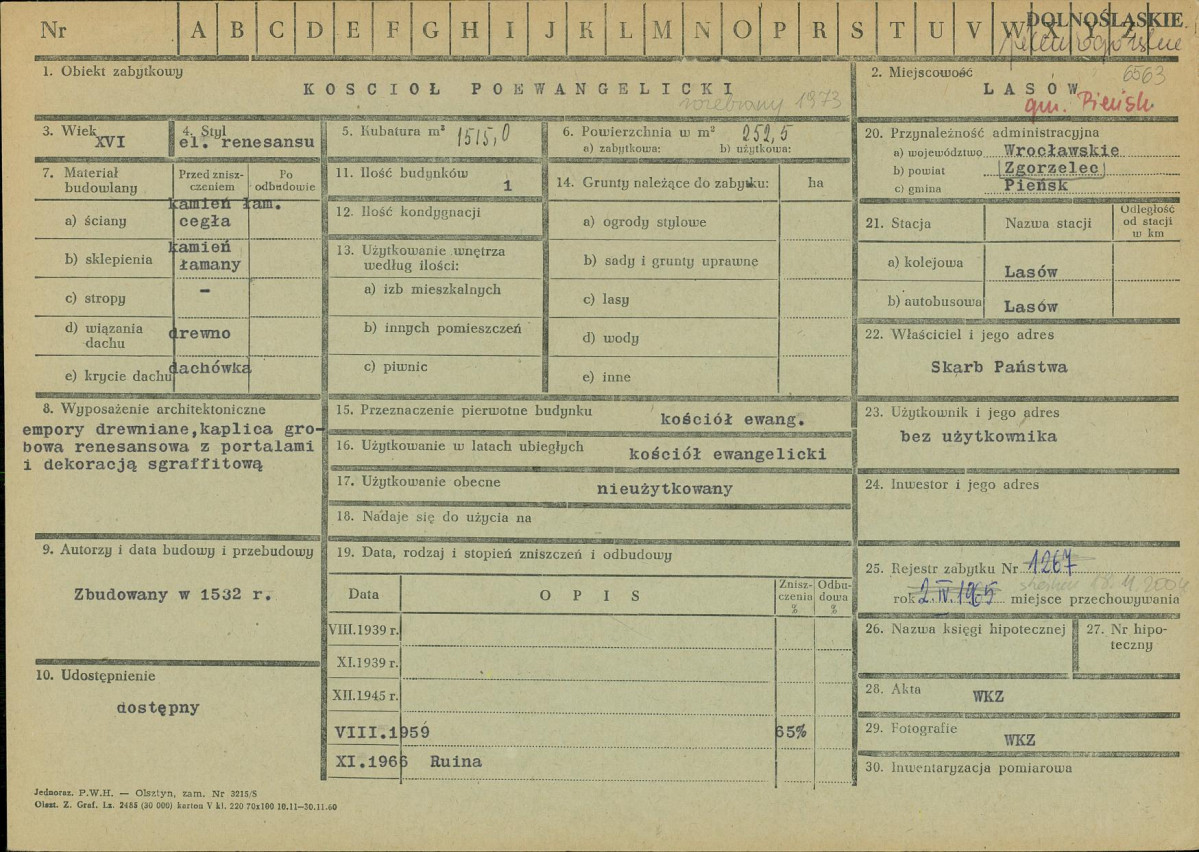 Nr A B C D E F G H I J K L M N O P R S T U V W X Y Z DOLNOŚLĄSKIE
jeleniogórskie
1. Obiekt zabytkowy
KOSCIOŁ POEWANGELICKI
rozebrany 1973
2. Miejscowość 6563
LASÓW
gm. Pieńsk
3. Wiek
XVI
4. Styl
el. renesansu
5. Kubatura m³ 1515,0
6. Powierzchnia w m² 252,5
a) zabytkowa: b) użytkowa:
7. Materiał budowlany
Przed zniszczeniem
Po odbudowie
a) ściany kamień łam.
cegła
b) sklepienia kamień
łamany
c) stropy –
d) wiązania dachu drewno
e) krycie dachu dachówka
8. Wyposażenie architektoniczne
empory drewniane,kaplica gro-
bowa renesansowa z portalami
i dekoracją sgraffitową
9. Autorzy i data budowy i przebudowy
Zbudowany w 1532 r.
10. Udostępnienie
dostępny
11. Ilość budynków
1
12. Ilość kondygnacji
13. Użytkowanie wnętrza
według ilości:
a) izb mieszkalnych
b) innych pomieszczeń
c) piwnic
14. Grunty należące do zabytku: ha
a) ogrody stylowe
b) sady i grunty uprawne
c) lasy
d) wody
e) inne
15. Przeznaczenie pierwotne budynku
kościół ewang.
16. Użytkowanie w latach ubiegłych
kościół ewangelicki
17. Użytkowanie obecne
nieużytkowany
18. Nadaje się do użycia na
19. Data, rodzaj i stopień zniszczeń i odbudowy
Data OPIS Zniszczenia % Odbudowa %
VIII.1939 r.
XI.1939 r.
XII.1945 r.
VIII.1959 65%
XI.1966 Ruina
20. Przynależność administracyjna
a) województwo Wrocławskie
b) powiat Zgorzelec
c) gmina Pieńsk
21. Stacja Nazwa stacji Odległość od stacji w km
a) kolejowa Lasów
b) autobusowa Lasów
22. Właściciel i jego adres
Skarb Państwa
23. Użytkownik i jego adres
bez użytkownika
24. Inwestor i jego adres
25. Rejestr zabytku Nr 1267
rok 2.IV.1965 miejsce przechowywania
26. Nazwa księgi hipotecznej
27. Nr hipo-
teczny
28. Akta WKZ
29. Fotografie
WKZ
30. Inwentaryzacja pomiarowa
Jednoraz. P.W.H. — Olsztyn, zam. Nr 3215/S
Olszt. Z. Graf. Lz. 2485 (30 000) karton V kl. 220 70x100 10.11—30.11.60